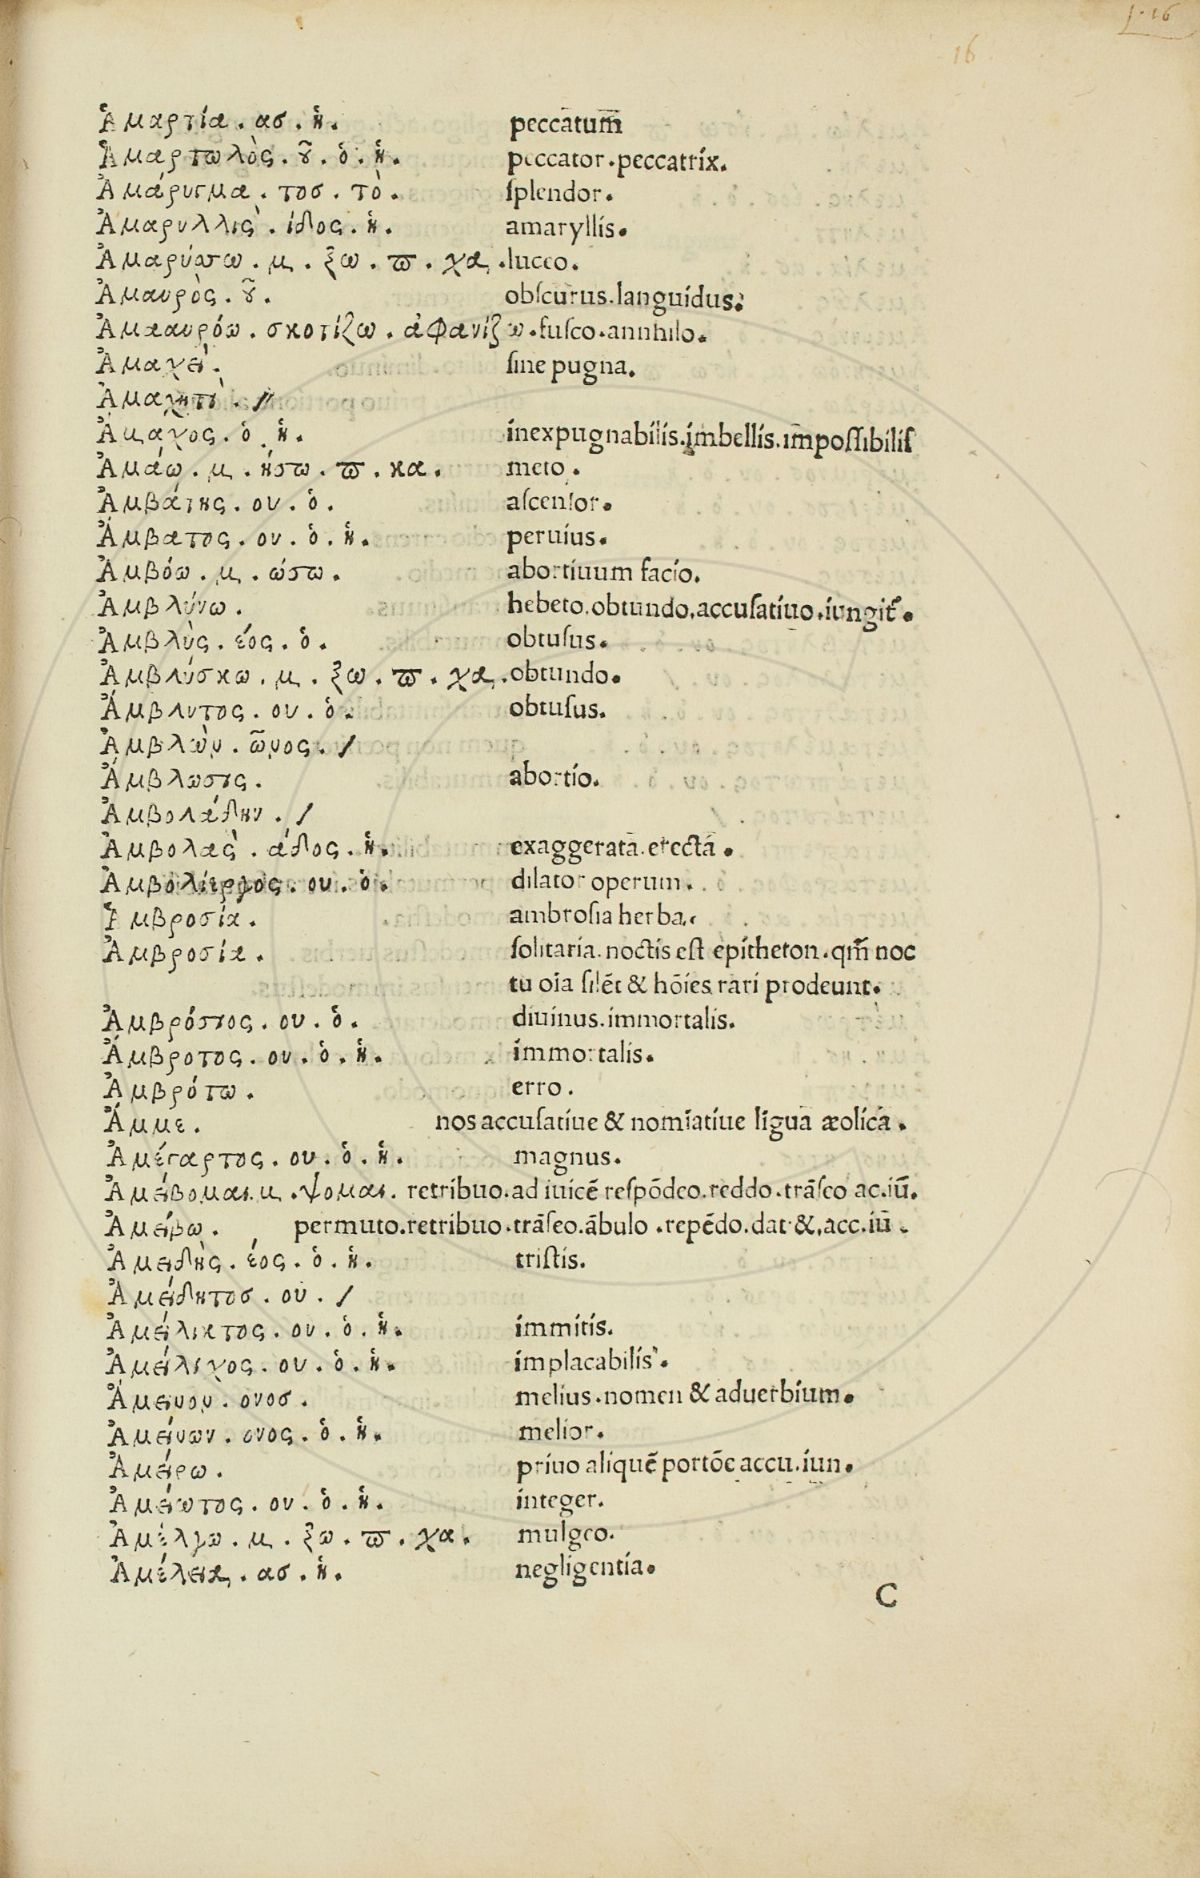 f. 16
16
Ἁμαρτία. ασ. ἡ. peccatum̄
Ἁμαρτωλὸς. οῦ. ὁ. ἡ. peccator. peccatrix.
Ἀμάρυγμα. τοσ. τὸ. splendor.
Ἀμαρυλλὶς. ίδος. ἡ. amaryllis.
Ἀμαρύσσω. μ. ξω. π. χα. luceo.
Ἀμαυρὸς. οῦ. obscurus. languidus.
Ἀμααυρόω. σκοτίζω. ἀφανίζω. fusco. annhilo.
Ἀμαχεὶ. sine pugna.
Ἀμαχητὶ. //
Ἄμαχος. ὁ. ἡ. inexpugnabilis. imbellis. im̄possibilis
Ἀμάω. μ. ήσω. π. κα. meto.
Ἀμβάτης. ου. ὁ. ascensor.
Ἄμβατος. ου. ὁ. ἡ. peruius.
Ἀμβόω. μ. ώσω. abortiuum facio.
Ἀμβλύνω. hebeto. obtundo. accusatiuo. iungit᷑.
Ἀμβλὺς. έος. ὁ. obtusus.
Ἀμβλύσκω. μ. ξω. π. χα. obtundo.
Ἄμβλυτος. ου. ὁ. obtusus.
Ἀμβλὼν. ῶνος. /
Ἄμβλωσις. abortio.
Ἀμβολάδην. /
Ἀμβολὰς. άδος. ἡ. exaggeratā. erectā.
Ἀμβολίεργος. ου. ὁ. dilator operum.
Ἀμβροσία. ambrosia herba.
Ἀμβροσία. solitaria. noctis est epitheton. qm̄ noc
tu oīa silēt & hōies rari prodeunt.
Ἀμβρόσιος. ου. ὁ. diuinus. immortalis.
Ἄμβροτος. ου. ὁ. ἡ. immortalis.
Ἀμβρότω. erro.
Ἄμμε. nos accusatiue & nomīatiue līgua æolica.
Ἀμέγαρτος. ου. ὁ. ἡ. magnus.
Ἀμείβομαι. μ. ψομαι. retribuo. ad iuicē respōdeo. reddo. trāseo ac. iū.
Ἀμείβω. permuto. retribuo. trāseo. ābulo. repēdo. dat &. acc. iū.
Ἀμειδὴς. έος. ὁ. ἡ. tristis.
Ἀμείδητοσ. ου. /
Ἀμείλικτος. ου. ὁ. ἡ. immitis.
Ἀμείλιχος. ου. ὁ. ἡ. implacabilis.
Ἄμεινον. ονοσ. melius. nomen & aduerbium.
Ἀμείνων. ονος. ὁ. ἡ. melior.
Ἀμείρω. priuo aliquē portōe accu. iun.
Ἀμείωτος. ου. ὁ. ἡ. integer.
Ἀμέλγω. μ. ξω. π. χα. mulgeo.
Ἀμέλεια. ασ. ἡ. negligentia.
C